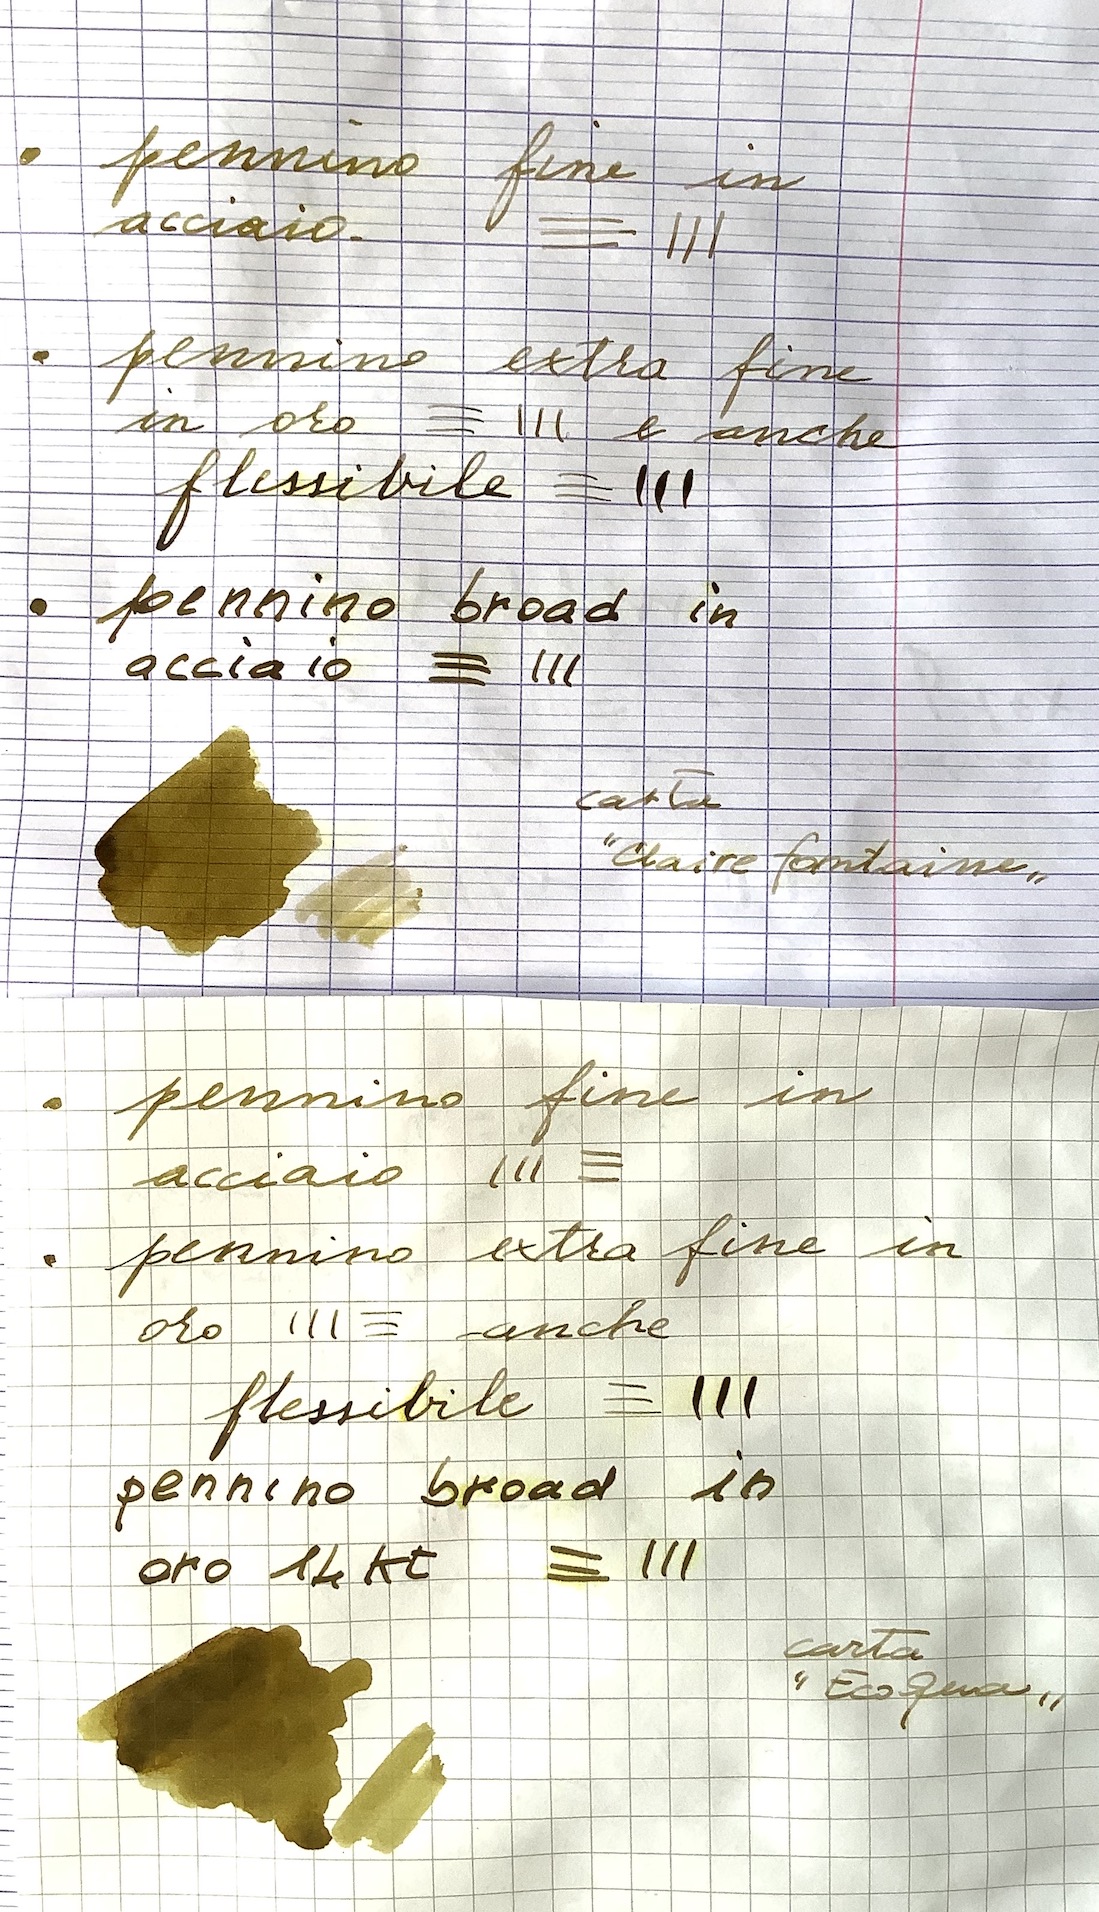 • pennino fine in
acciaio.
• pennino extra fine
in oro e anche
flessibile
• pennino broad in
acciaio
carta
"Claire fontaine„
• pennino fine in
acciaio
• pennino extra fine in
oro anche
flessibile
pennino broad in
oro 14 kt
carta
"EcoQua„